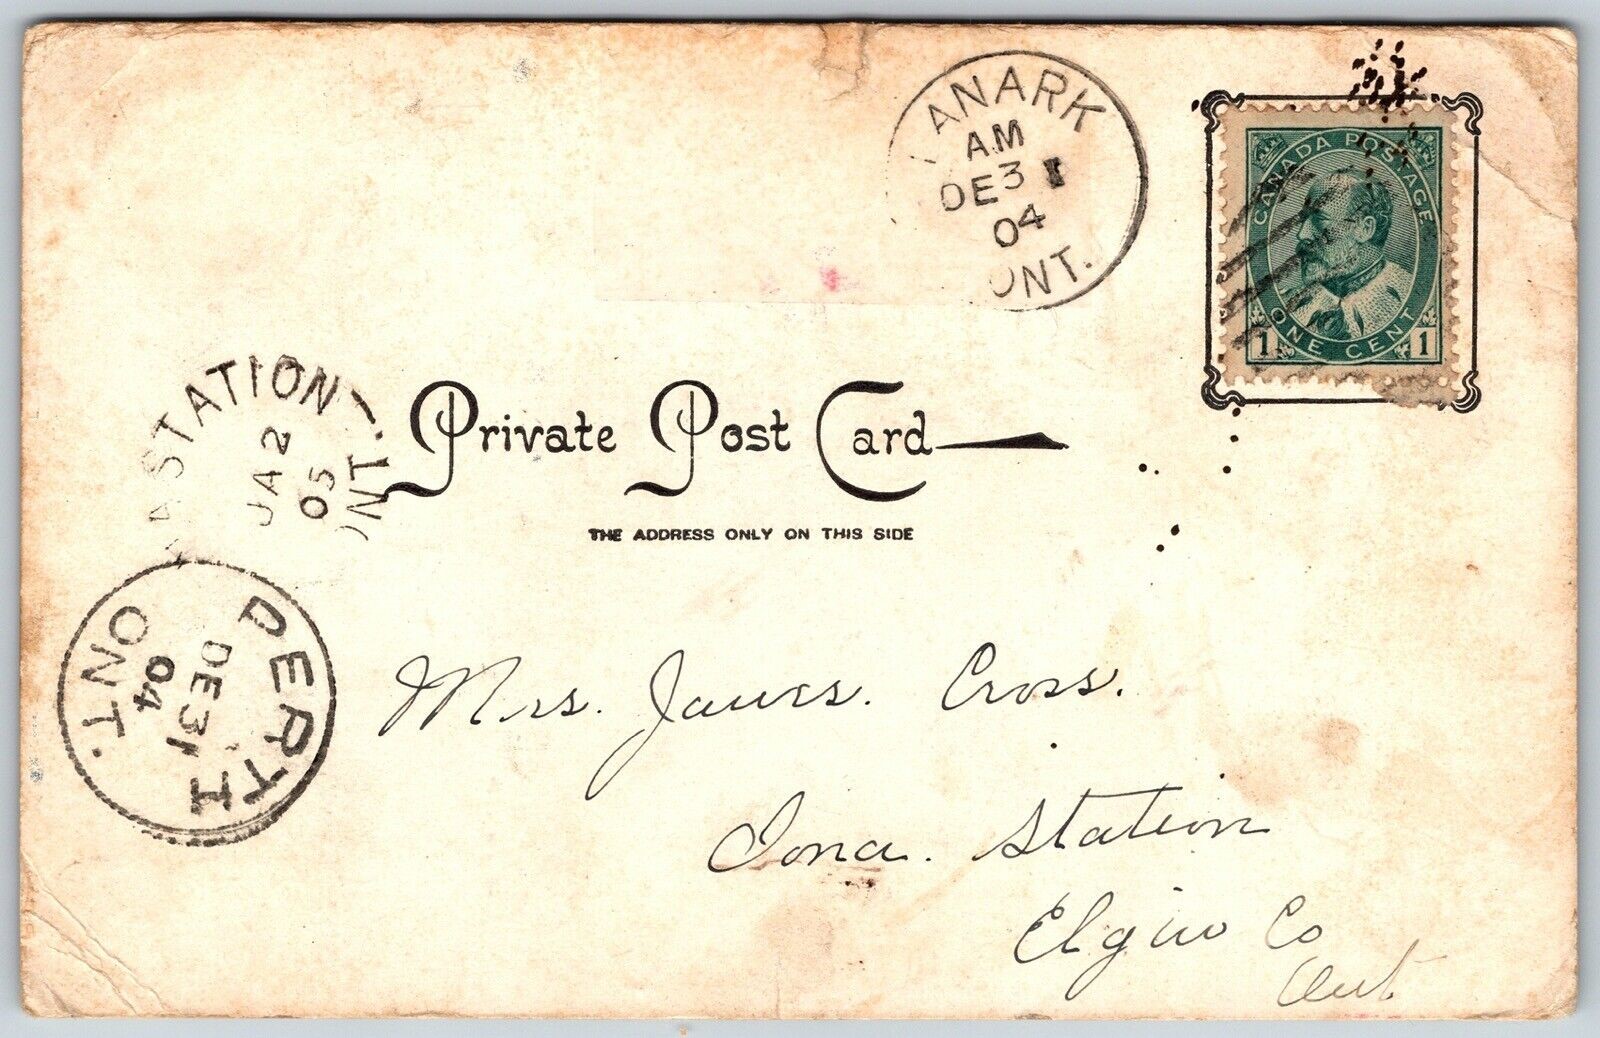 LANARK
AM
DE 31
04
ONT.
CANADA POSTAGE
1 ONE CENT 1
STATION
JA 2
05
ONT.
Private Post Card
THE ADDRESS ONLY ON THIS SIDE
PERTH
DE 31
04
ONT.
Mrs. James. Cross.
Iona. Station
Elgin Co
Ont